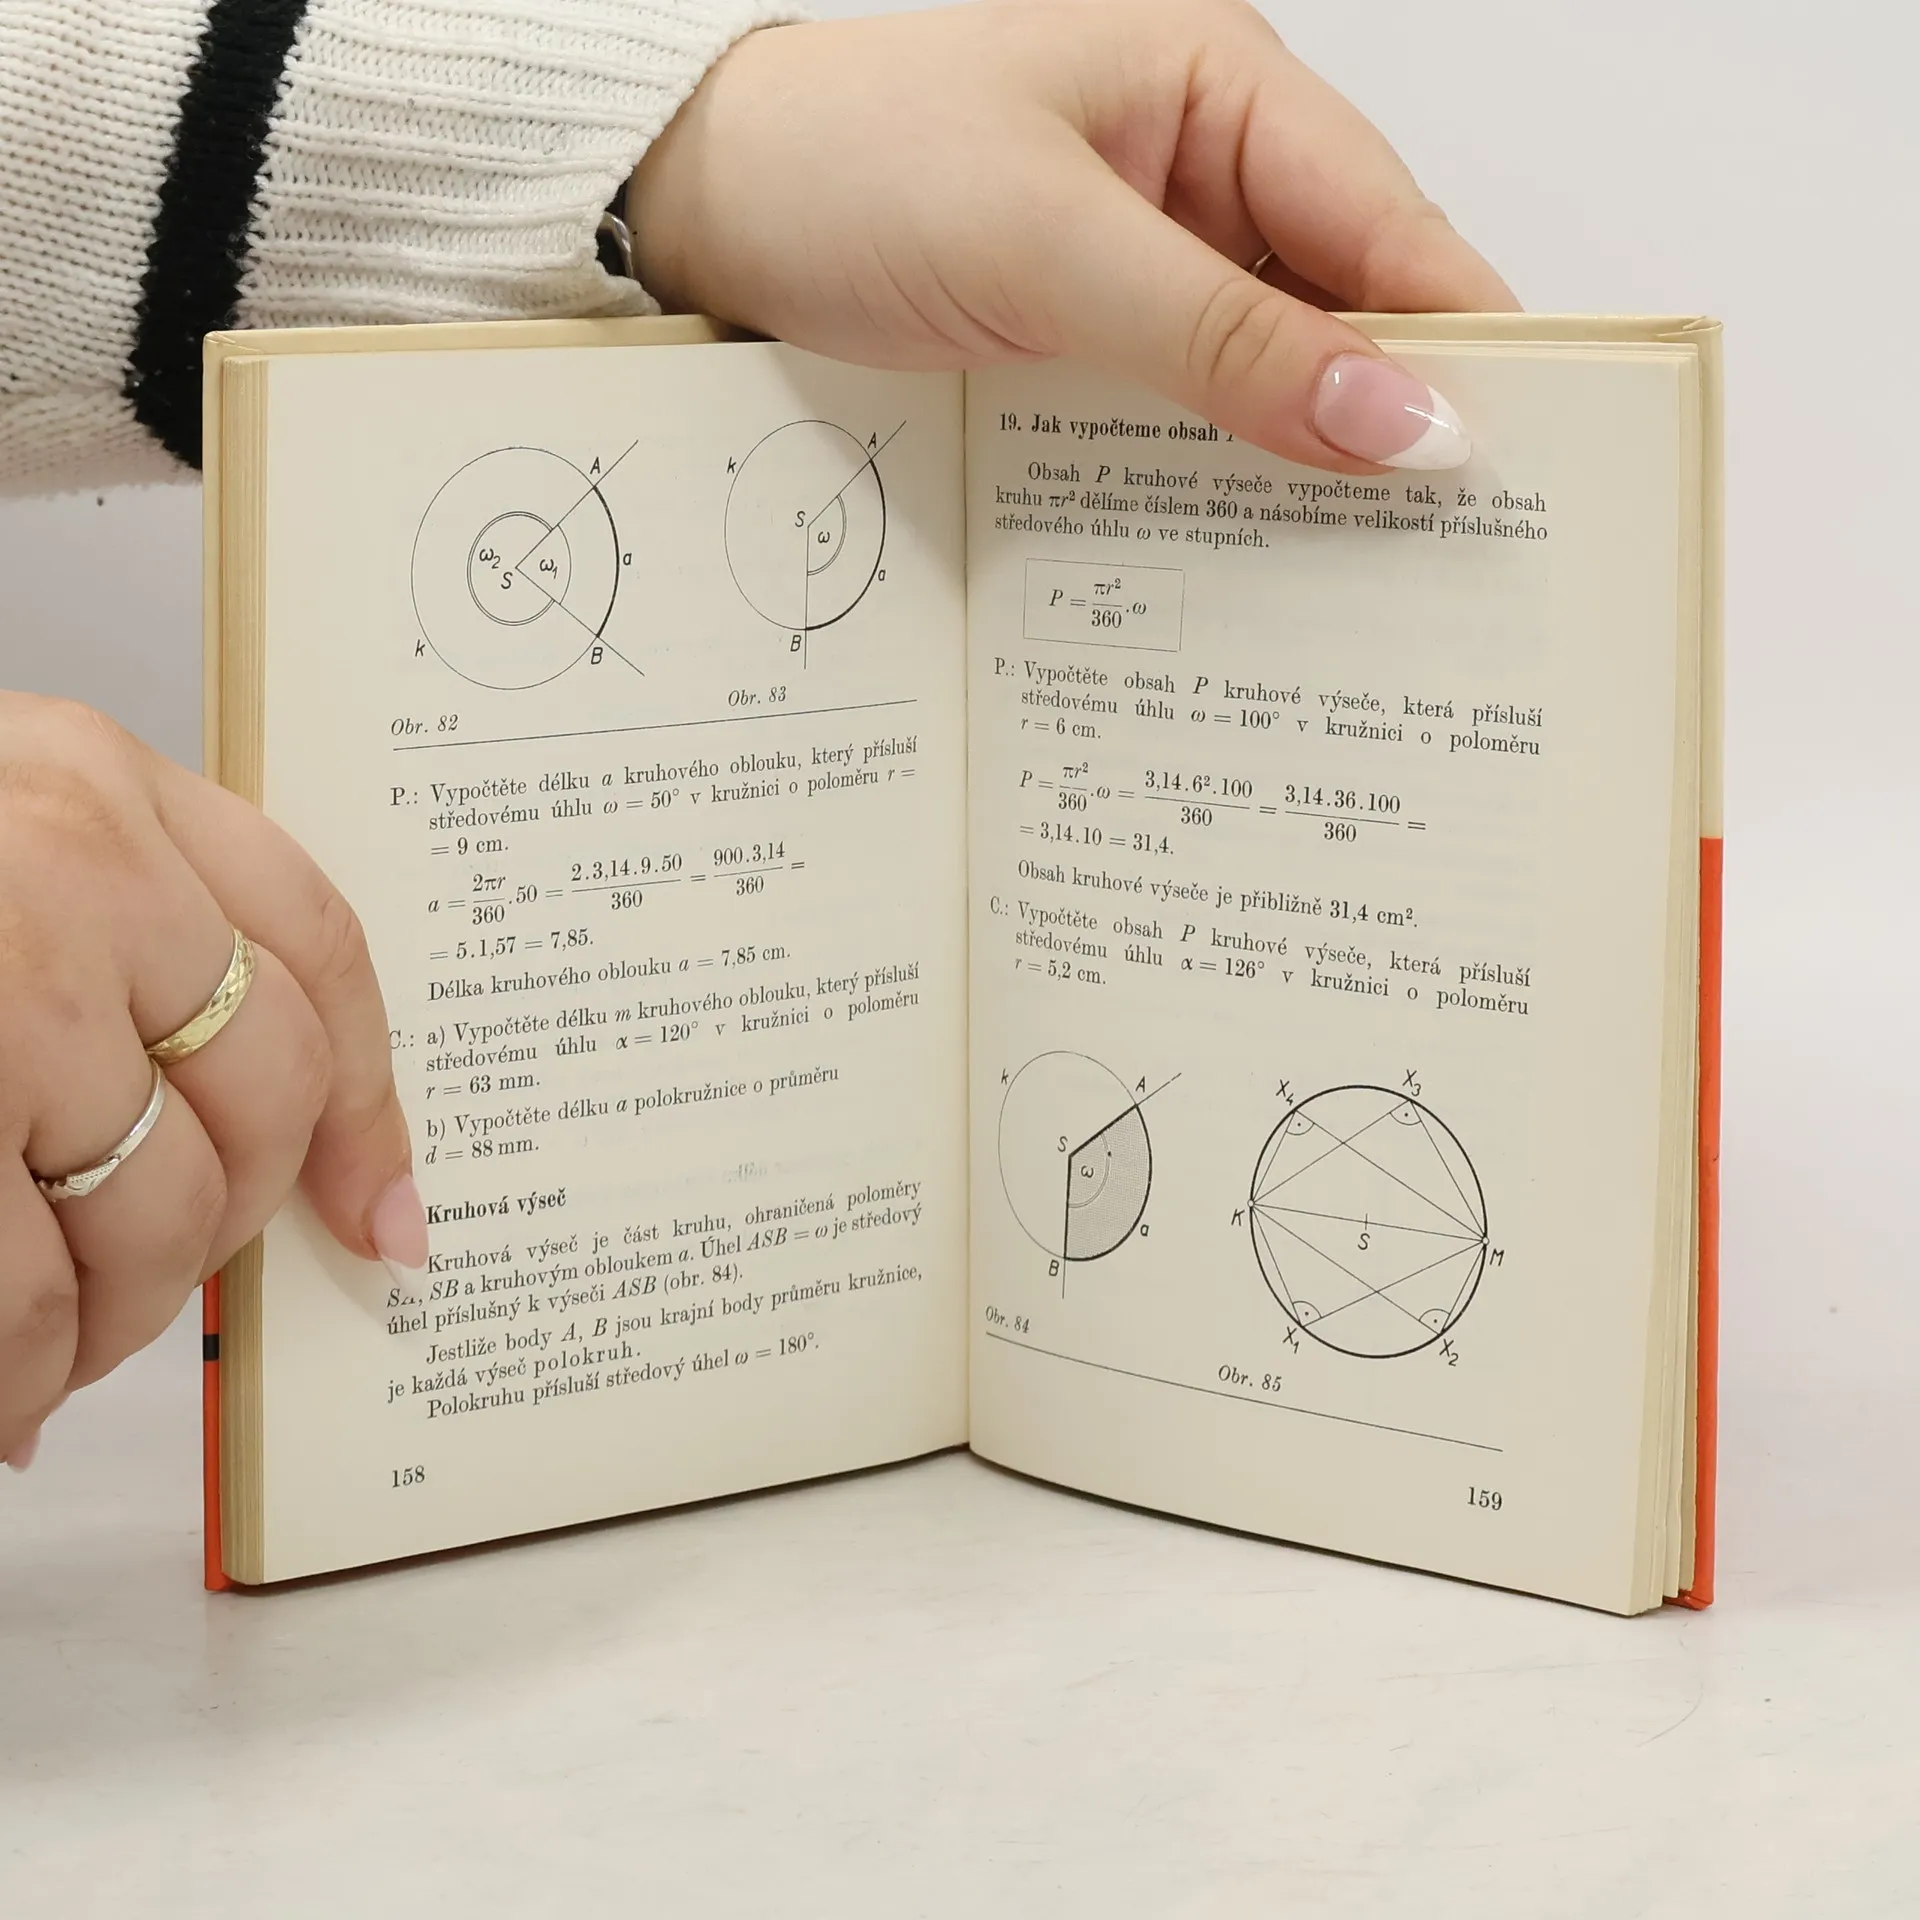 A
k
ω₂
S
ω₁
a
k
B
Obr. 82
A
k
S
ω
a
B
Obr. 83
P.: Vypočtěte délku a kruhového oblouku, který přísluší
středovému úhlu ω = 50° v kružnici o poloměru r =
= 9 cm.
a = 2πr/360 . 50 = 2.3,14.9.50/360 = 900.3,14/360 =
= 5.1,57 = 7,85.
Délka kruhového oblouku a = 7,85 cm.
C.: a) Vypočtěte délku m kruhového oblouku, který přísluší
středovému úhlu α = 120° v kružnici o poloměru
r = 63 mm.
b) Vypočtěte délku a polokružnice o průměru
d = 88 mm.
Kruhová výseč
Kruhová výseč je část kruhu, ohraničená poloměry
SA, SB a kruhovým obloukem a. Úhel ASB = ω je středový
úhel příslušný k výseči ASB (obr. 84).
Jestliže body A, B jsou krajní body průměru kružnice,
je každá výseč polokruh.
Polokruhu přísluší středový úhel ω = 180°.
158
19. Jak vypočteme obsah
Obsah P kruhové výseče vypočteme tak, že obsah
kruhu πr² dělíme číslem 360 a násobíme velikostí příslušného
středového úhlu ω ve stupních.
P = πr²/360 . ω
P.: Vypočtěte obsah P kruhové výseče, která přísluší
středovému úhlu ω = 100° v kružnici o poloměru
r = 6 cm.
P = πr²/360 . ω = 3,14.6².100/360 = 3,14.36.100/360 =
= 3,14.10 = 31,4.
Obsah kruhové výseče je přibližně 31,4 cm².
C.: Vypočtěte obsah P kruhové výseče, která přísluší
středovému úhlu α = 126° v kružnici o poloměru
r = 5,2 cm.
k
A
S
ω
a
B
Obr. 84
X₄
X₃
K
S
M
X₁
X₂
Obr. 85
159